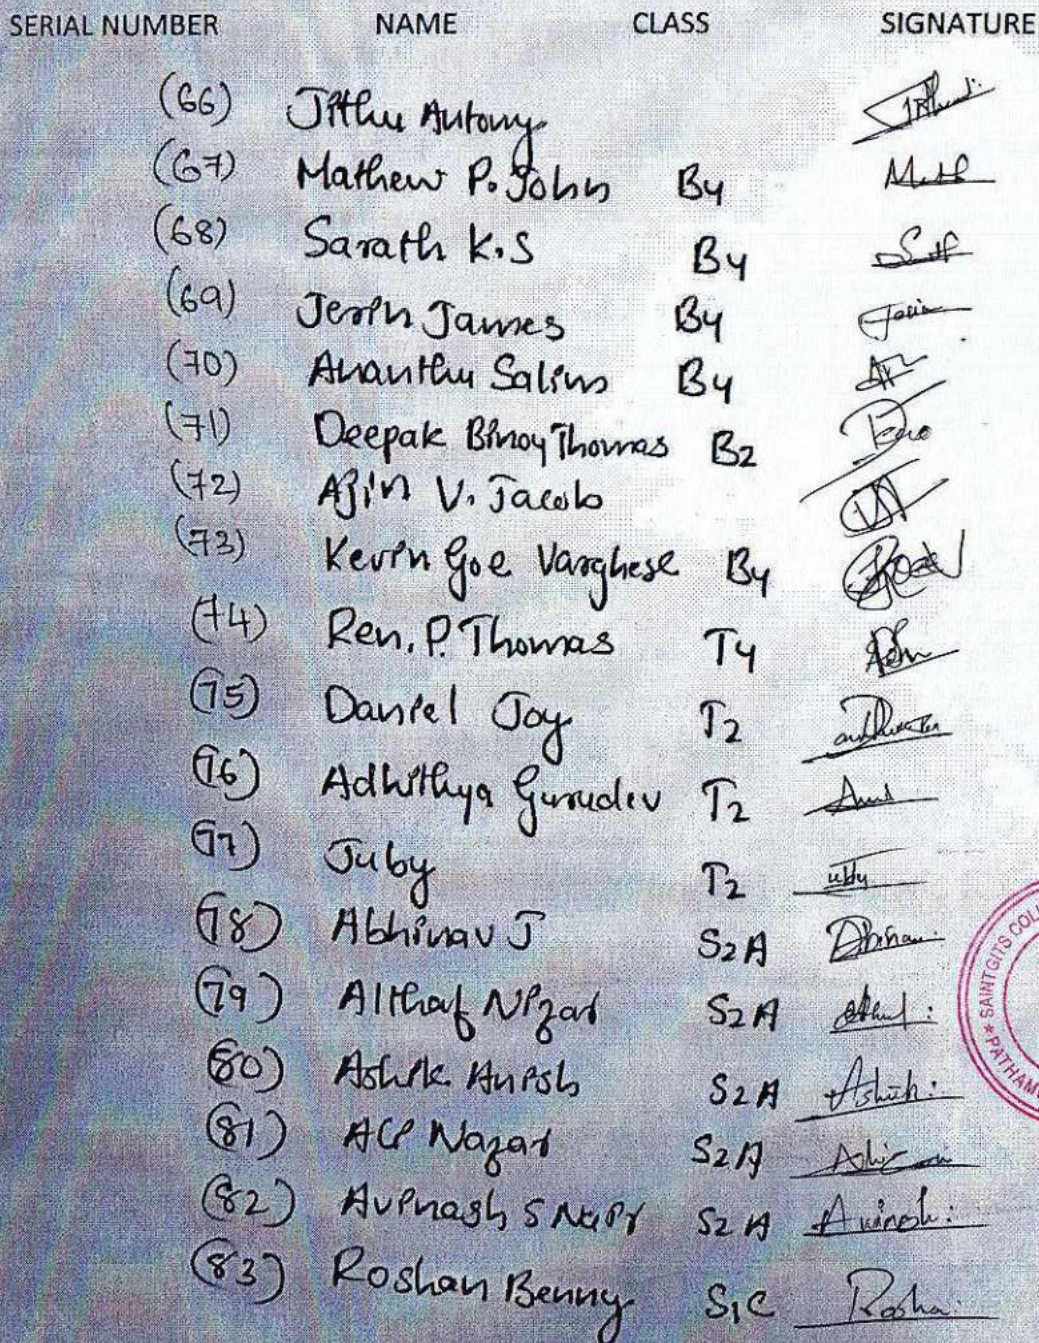 SERIAL NUMBER NAME CLASS SIGNATURE
(66) Jithu Antony
(67) Mathew P. John B4
(68) Sarath K.S B4
(69) Jerin James B4
(70) Ananthu Salim B4
(71) Deepak Binoy Thomas B2
(72) Ajin V. Jacob
(73) Kevin Goe Varghese B4
(74) Ren. P. Thomas T4
(75) Daniel Joy T2
(76) Adhithya Gurudev T2
(77) Juby T2
(78) Abhinav J S2A
(79) Althaf Nizar S2A
(80) Ashik Anish S2A Ashik
(81) Ali Nazar S2A
(82) Avinash S Nair S2A Avinash
(83) Roshan Benny S1C Rosha
SAINTGITS COLL
PATHAM